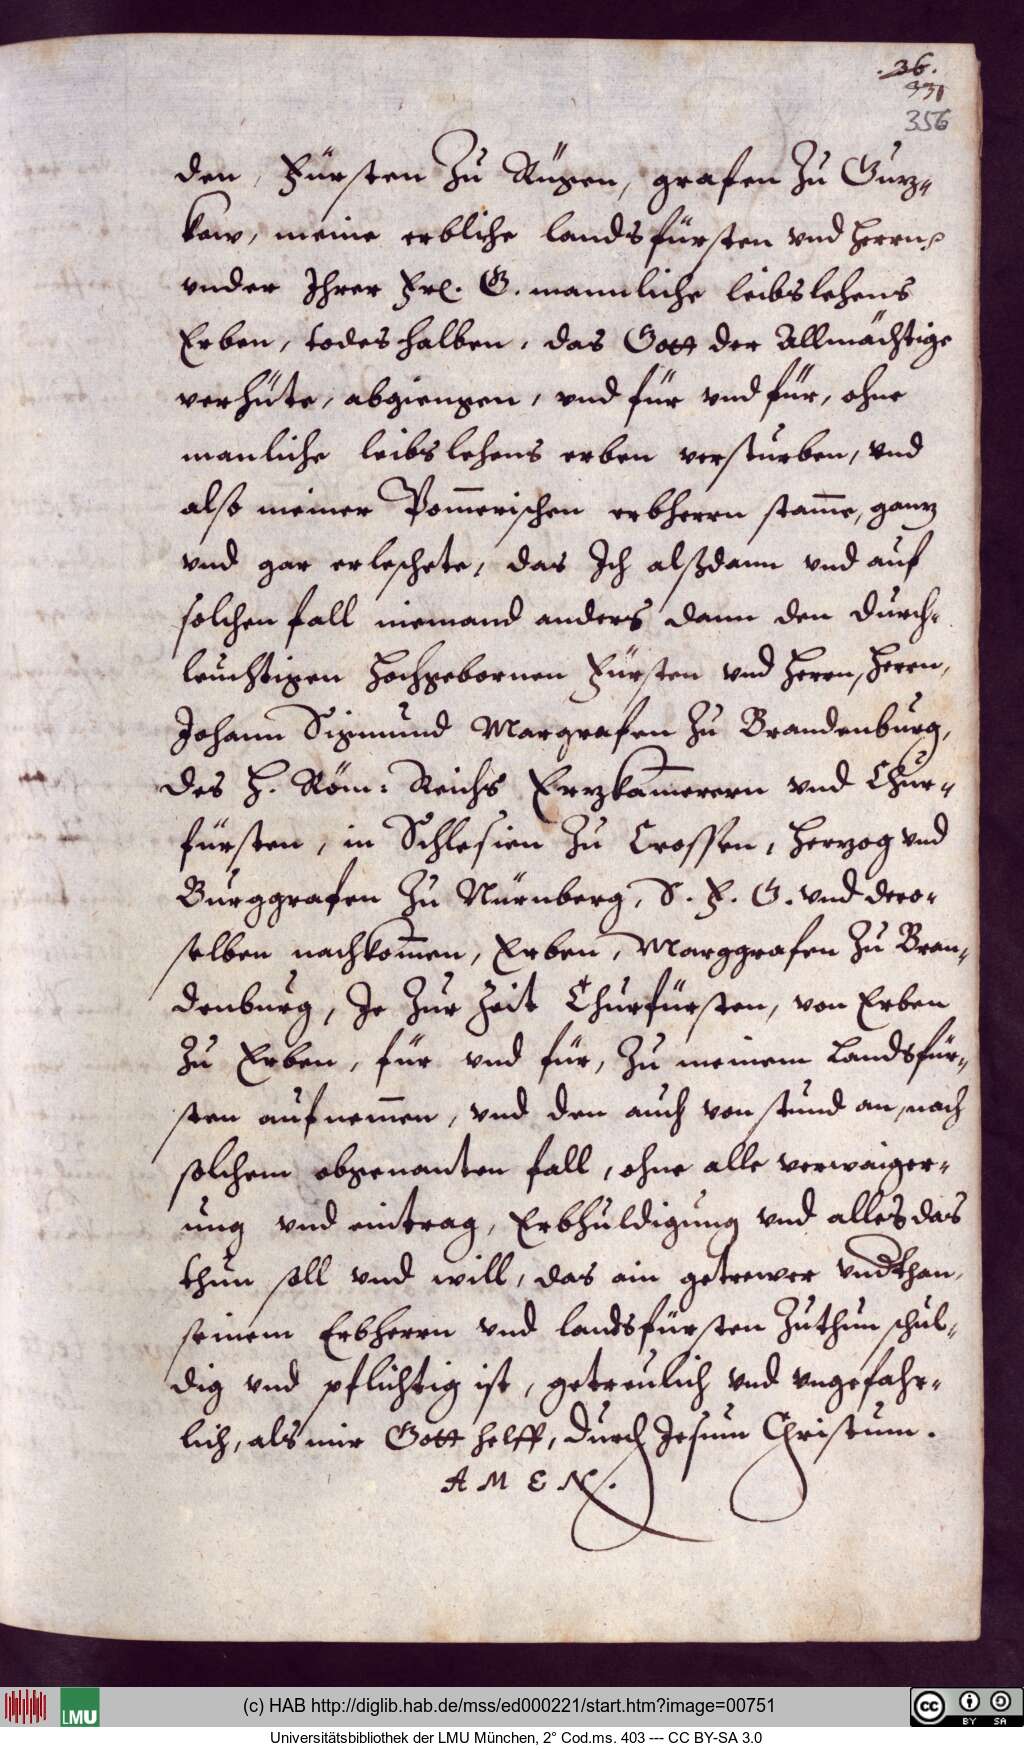 .36.
331
356
den, Fürsten Zu Rügen, grafen Zu Gutz-
kow, meine erbliche landsfürsten vnd Herrn,
vnder Ihrer Frl. G. mannliche leibslehens
Erben, todes halben, das Gott der Allmächtige
verhüte, abgiengen, vnd für vnd für, ohne
manliche leibslehens erben verstürben, vnd
also meiner Pom̄erischen erbherrn stam̄e, gantz
vnd gar erleschete, das Ich alßdann vnd auf
solchen fall niemand anders dann den Durch-
leuchtigen Hochgebornen Fürsten vnd Herrn, Herrn,
Johann Sigmund Margrafen Zu Brandenburg,
des H. Röm: Reichs Ertzkam̄erern vnd Chur-
fürsten, in Schlesien Zu Crossen, Hertzog vnd
Burggrafen Zu Nürnberg, S. F. G. vnd dero-
selben nachkom̄en, Erben, Marggrafen Zu Bran-
denburg, Je Zur Zeit Churfürsten, von Erben
Zu Erben, für vnd für, Zu meinem Landsfür-
sten aufnem̄en, vnd den auch von stund an, nach
solchem obgenanten fall, ohne alle verwaiger-
ung vnd eintrag, Erbhuldigung vnd alles das
thun soll vnd will, das ain getrewer vndthan,
seinem Erbherrn vnd landsfürsten Zuthun schul-
dig vnd pflichtig ist, getreulich vnd vngefahr-
lich, als mir Gott helff, Durch Jesum Christum.
AMEN.
LMU
(c) HAB http://diglib.hab.de/mss/ed000221/start.htm?image=00751
cc BY SA
Universitätsbibliothek der LMU München, 2° Cod.ms. 403 --- CC BY-SA 3.0